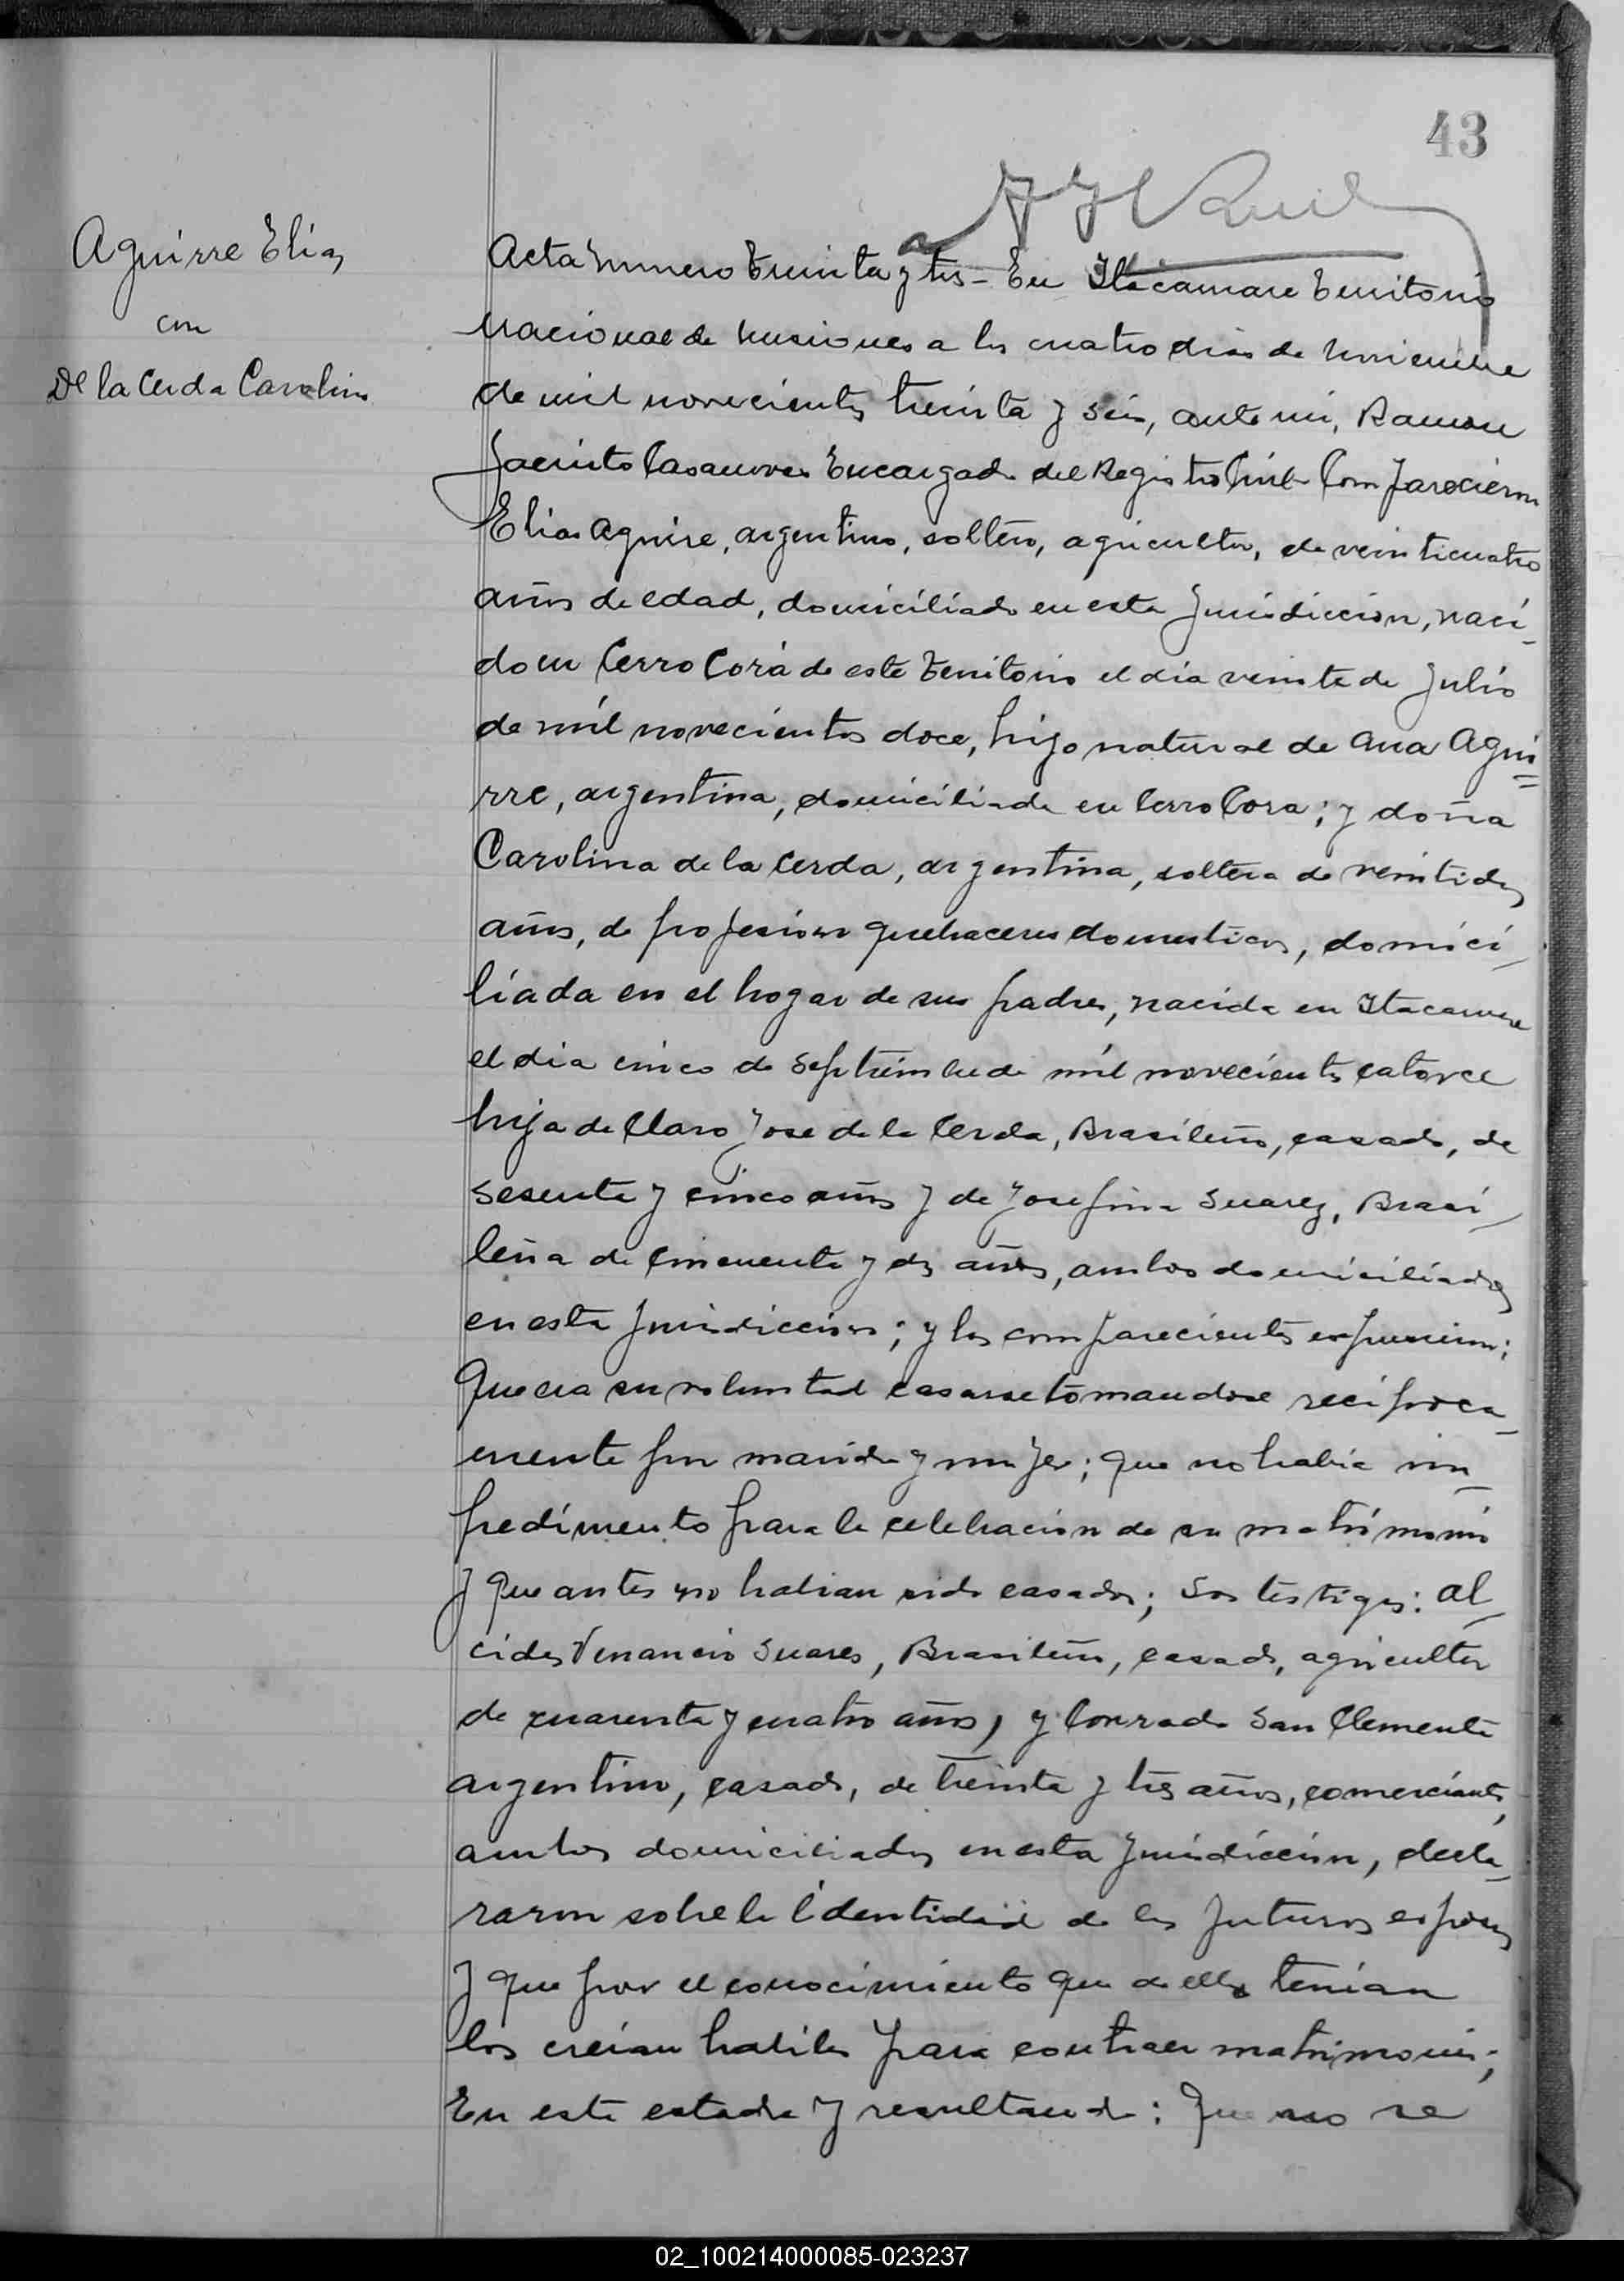 43
Aguirre Elias
con
De la Cerda Carolina
Acta numero Treinta y tres - En Itacaruare Territorio
Nacional de Misiones a los cuatro dias de Noviembre
de mil novecientos treinta y seis, ante mi, Ramon
Jacinto Casanova Encargado del Registro Civil Comparecieron
Elias Aguirre, argentino, soltero, agricultor, de veinticuatro
años de edad, domiciliado en esta Jurisdiccion, naci-
do en Cerro Corá de este Territorio el día veinte de Julio
de mil novecientos doce, hijo natural de Ana Agui=
rre, argentina, domiciliada en Cerro Cora; y doña
Carolina de la Cerda, argentina, soltera de veintidos
años, de profesion quehaceres domesticos, domici-
liada en el hogar de sus padres, nacida en Itacaruare
el dia cinco de Septiembre de mil novecientos catorce
hija de Claro Jose de la Cerda, Brasileño, casado, de
sesenta y cinco años y de Josefina Suarez, Brasi-
leña de cincuenta y dos años, ambos domiciliados
en esta Jurisdiccion; y los comparecientes expusieron:
Que era su voluntad casarse tomandose reciproca-
mente por marido y mujer; que no habia im-
pedimento para la celebracion de su matrimonio
y que antes no habian sido casados; Los testigos: Al-
cides Venancio Suares, Brasileño, casado, agricultor
de cuarenta y cuatro años, y Conrado San Clemente
argentino, casado, de treinta y tres años, comerciante,
ambos domiciliados en esta Jurisdicción, decla-
raron sobre la identidad de los futuros esposos
y que por el conocimiento que de ellos tenian
los creian habiles para contraer matrimonio;
En este estado y resultando: Que no se
02_100214000085-023237